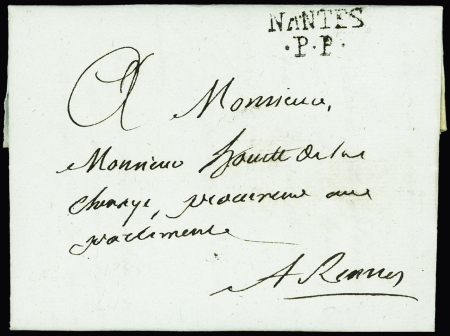 NANTES
·P·P·
A Monsieur,
Monsieur de la
procureur au
parlement
A Rennes